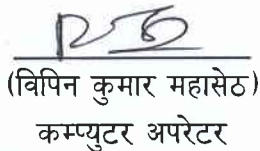 (विपिन कुमार महासेठ)
कम्प्युटर अपरेटर